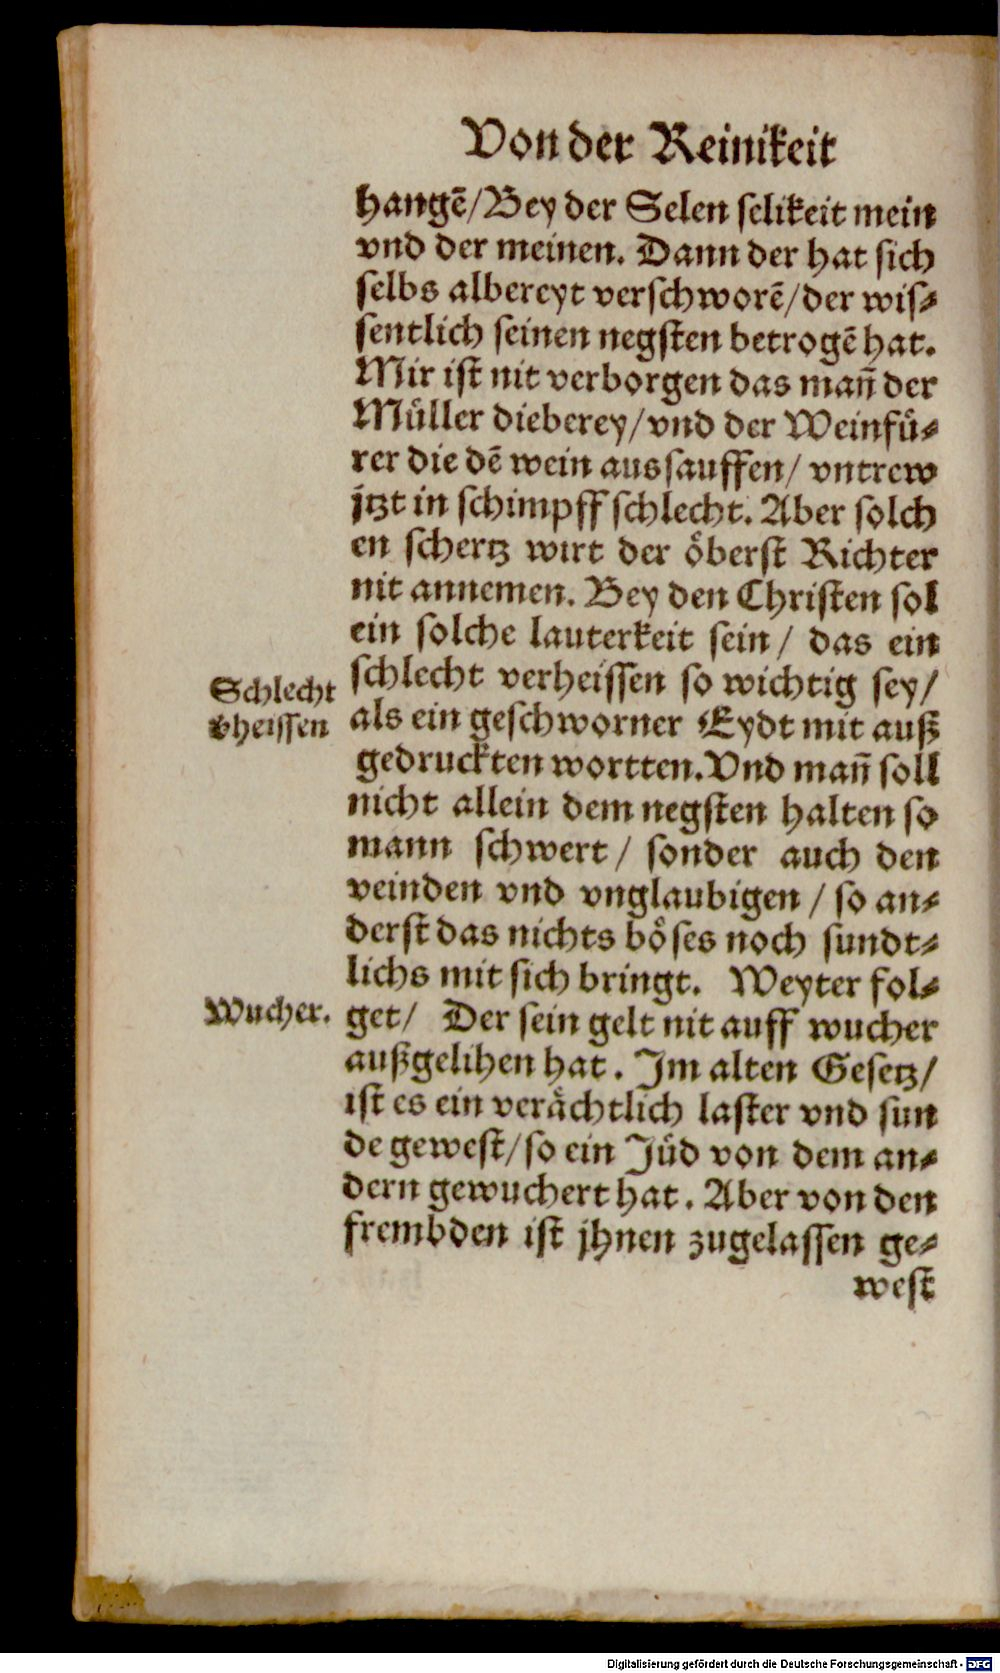 Von der Reinikeit
hangẽ/Bey der Selen selikeit mein
vnd der meinen. Dann der hat sich
selbs albereyt verschworẽ/der wis⸗
sentlich seinen negsten betrogẽ hat.
Mir ist nit verborgen das mañ der
Müller dieberey/vnd der Weinfü⸗
rer die dẽ wein aussauffen/ vntrew
jtzt in schimpff schlecht. Aber solch
en schertz wirt der öberst Richter
nit annemen. Bey den Christen sol
ein solche lauterkeit sein/ das ein
schlecht verheissen so wichtig sey/
als ein geschworner Eydt mit auß
gedruckten wortten. Vnd mañ soll
nicht allein dem negsten halten so
mann schwert/ sonder auch den
veinden vnd vnglaubigen/ so an⸗
derst das nichts böses noch sundt⸗
lichs mit sich bringt. Weyter fol⸗
get/ Der sein gelt nit auff wucher
außgelihen hat. Im alten Gesetz/
ist es ein verächtlich laster vnd sun
de gewest/so ein Jüd von dem an⸗
dern gewuchert hat. Aber von den
frembden ist jhnen zugelassen ge⸗
west
Schlecht
vheissen
Wucher.
Digitalisierung gefördert durch die Deutsche Forschungsgemeinschaft - DFG